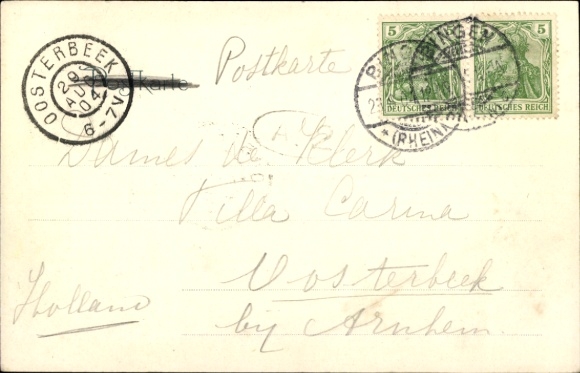 OOSTERBEEK
29
AUG
04
6-7V
Postkarte
Postkarte
5
5
BINGEN
BINGEN
DEUTSCHES REICH
DEUTSCHES REICH
*(RHEIN)
Dames de Klerk
Villa Carina
Oosterbeek
Holland
by Arnhem.